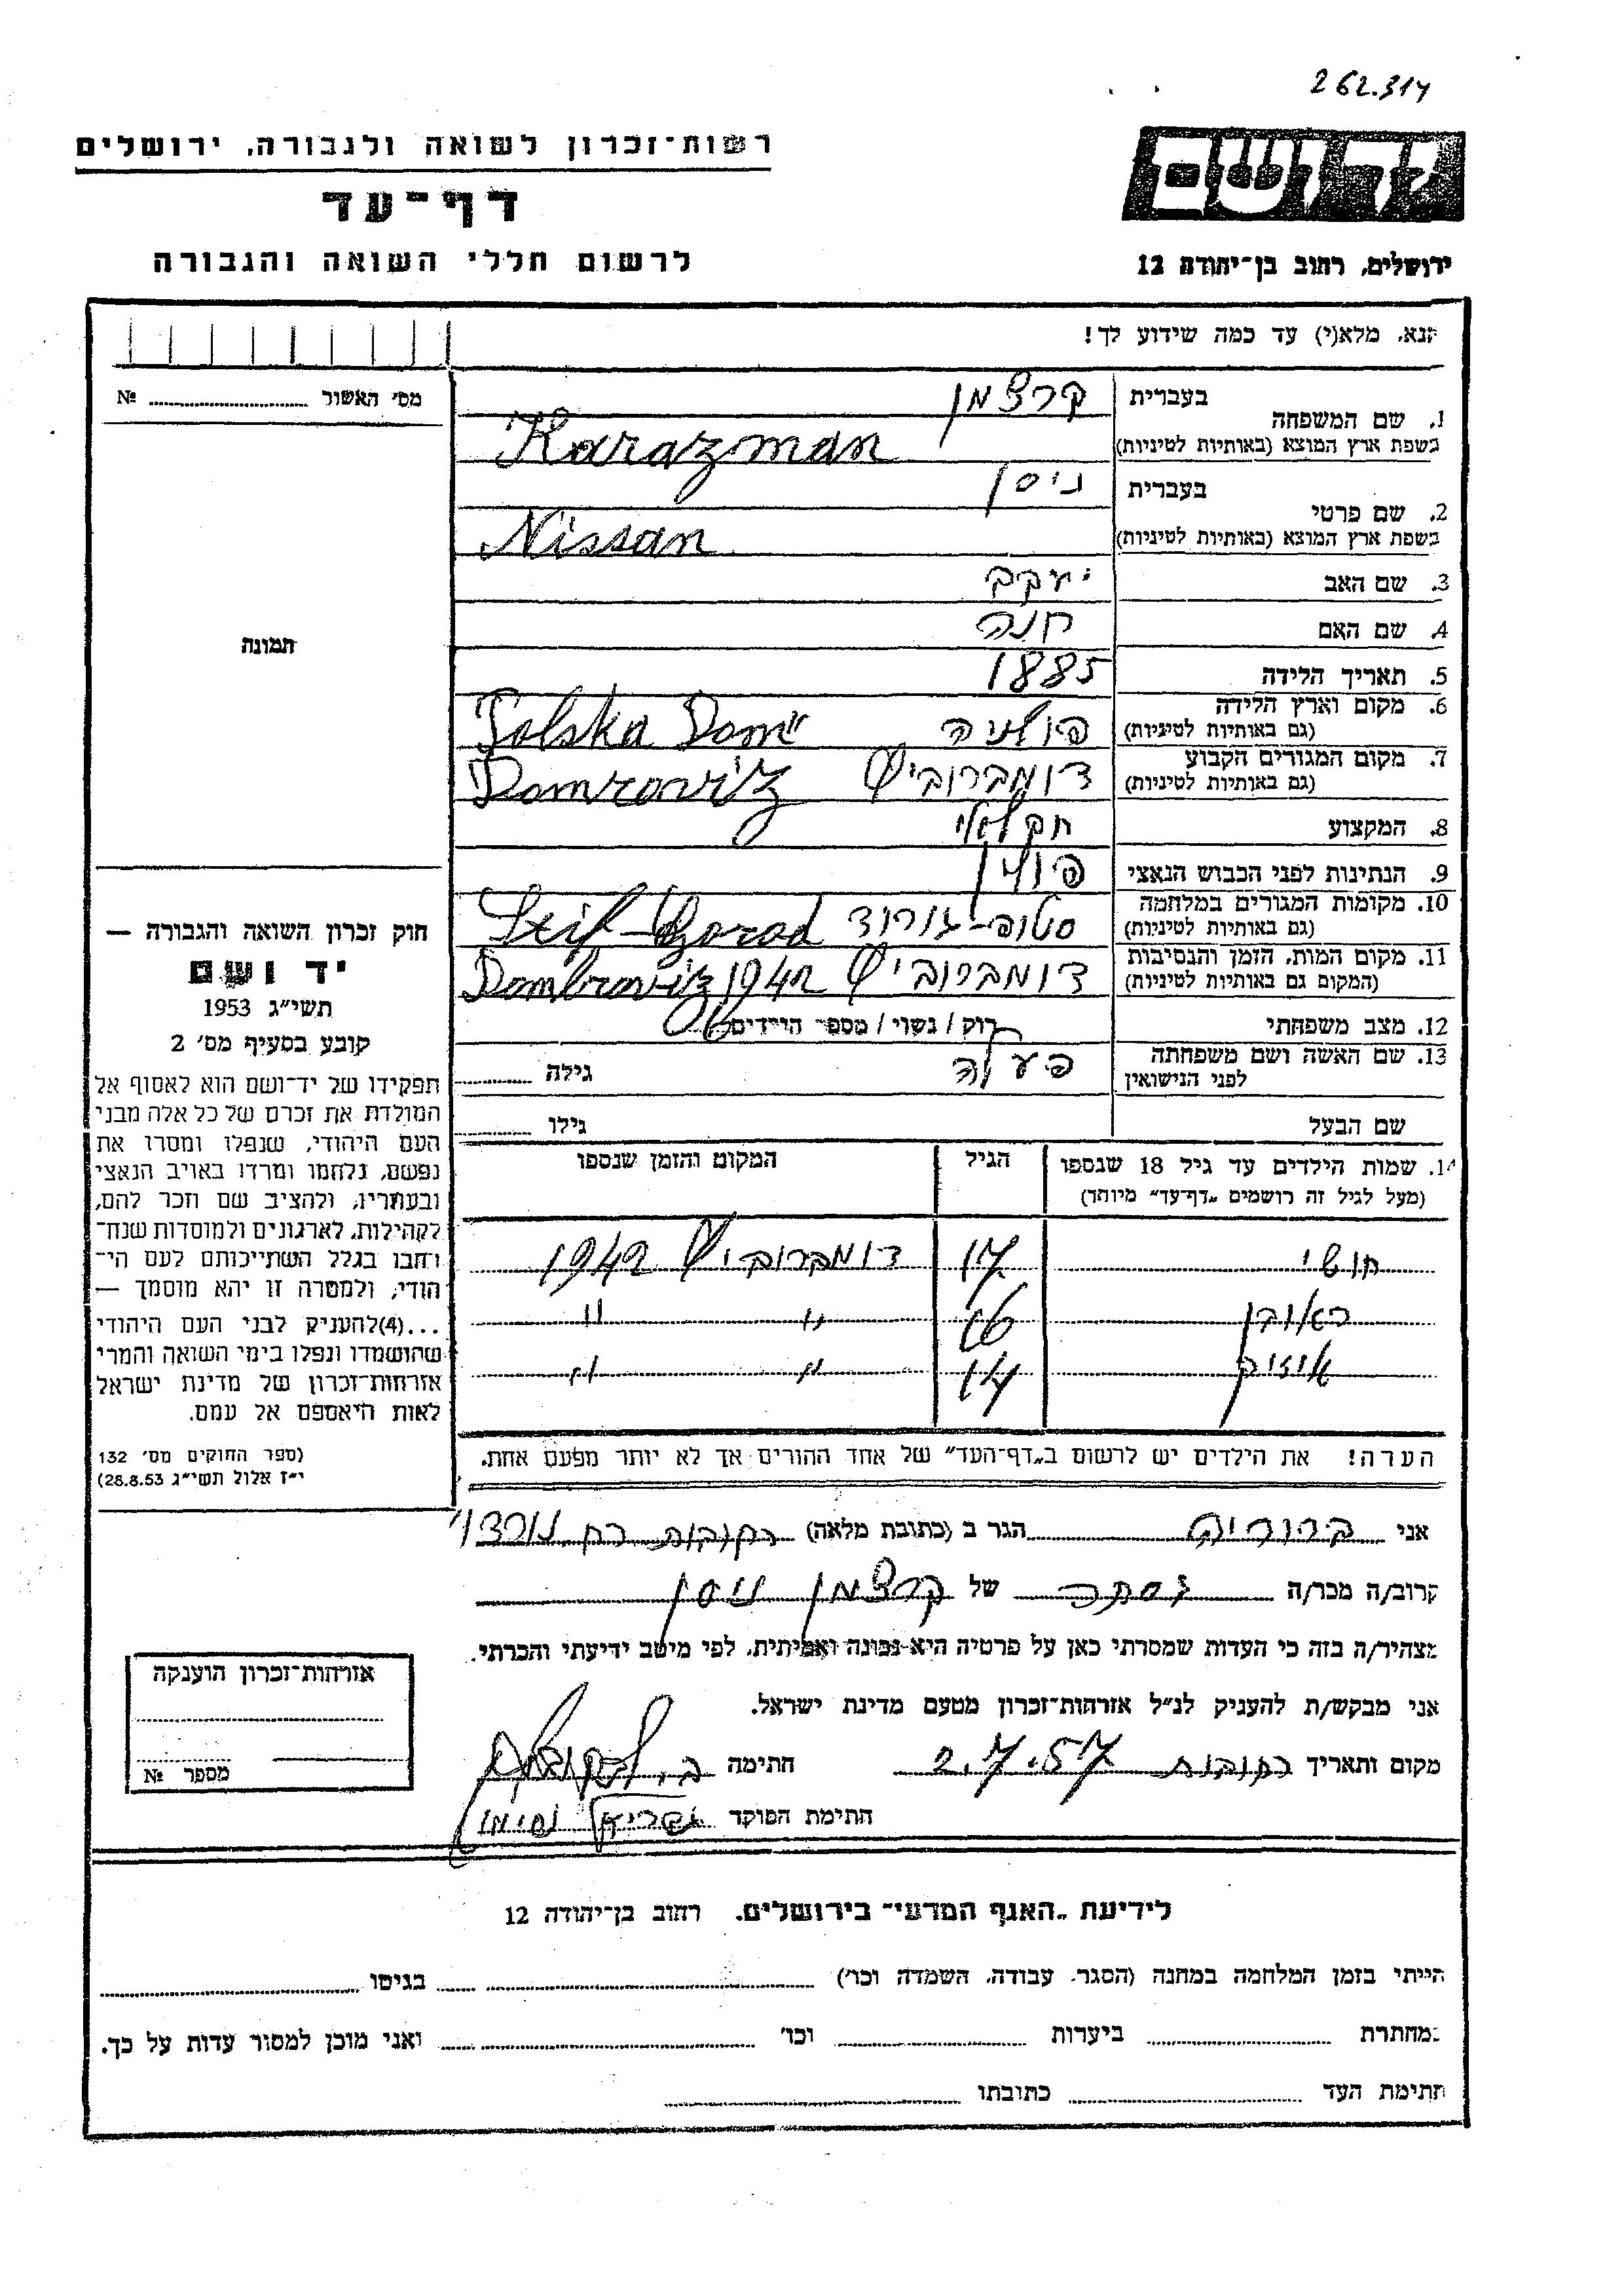 262.314
רשות-זכרון לשואה ולגבורה, ירושלים
דף-עד
לרשום חללי השואה והגבורה
יד ושם
ירושלים, רחוב בן-יהודה 12
אנא, מלא(י) עד כמה שידוע לך!
מס' האשור № 
1. שם המשפחה
בעברית קרצמן
בשפת ארץ המוצא (באותיות לטיניות) Karazman
2. שם פרטי
בעברית ניסן
בשפת ארץ המוצא (באותיות לטיניות) Nissan
3. שם האב יעקב
4. שם האם חנה
5. תאריך הלידה 1885
6. מקום וארץ הלידה
(גם באותיות לטיניות) פולניה Polska Dom"
7. מקום המגורים הקבוע
(גם באותיות לטיניות) דומברוביץ Domroviz
8. המקצוע חקלאי
9. הנתינות לפני הכבוש הנאצי פולין
10. מקומות המגורים במלחמה
(גם באותיות לטיניות) סטיפ-גורוד
11. מקום המות, הזמן והנסיבות
(המקום גם באותיות לטיניות) דומברוביץ Dombroviz 1942
12. מצב משפחתי רוק / נשוי / מספר הילדים 6
13. שם האשה ושם משפחתה
לפני הנישואין גילה
שם הבעל גילו
14. שמות הילדים עד גיל 18 שנספו
(מעל לגיל זה רושמים "דף-עד" מיוחד)
הגיל
המקום והזמן שנספו
חושי 17 דומברוביץ 1942
ראובן 16 " "
איזיק 14 " "
הערה! את הילדים יש לרשום ב"דף-העד" של אחד ההורים אך לא יותר מפעם אחת.
תמונה
חוק זכרון השואה והגבורה —
יד ושם
תשי"ג 1953
קובע בסעיף מס' 2
תפקידו של יד-ושם הוא לאסוף אל
המולדת את זכרם של כל אלה מבני
העם היהודי, שנפלו ומסרו את
נפשם, נלחמו ומרדו באויב הנאצי
ובעוזריו, ולהציב שם וזכר להם,
לקהילות, לארגונים ולמוסדות שנח-
רחבו בגלל השתייכותם לעם הי-
הודי, ולמטרה זו יהא מוסמך —
...(4)להעניק לבני העם היהודי
שהושמדו ונפלו בימי השואה והמרי
אזרחות-זכרון של מדינת ישראל
לאות היאספם אל עמם.
(ספר החוקים מס' 132
י"ז אלול תשי"ג 28.8.53)
אני ברוריה הגר ב (כתובת מלאה) רחובות רח
קרוב/ה מכר/ה של קרצמן ניסן
מצהיר/ה בזה כי העדות שמסרתי כאן על פרטיה היא נכונה ואמיתית, לפי מיטב ידיעתי והכרתי.
אני מבקש/ת להעניק לנ"ל אזרחות-זכרון מטעם מדינת ישראל.
מקום ותאריך רחובות 2.7.57 חתימה
חתימת הפוקד
אזרחות-זכרון הוענקה
מספר №
לידיעת "האגף המדעי" בירושלים, רחוב בן-יהודה 12
הייתי בזמן המלחמה במחנה (הסגר, עבודה, השמדה וכו') בגיטו
במחתרת ביערות וכו' ואני מוכן למסור עדות על כך.
חתימת העד כתובתו